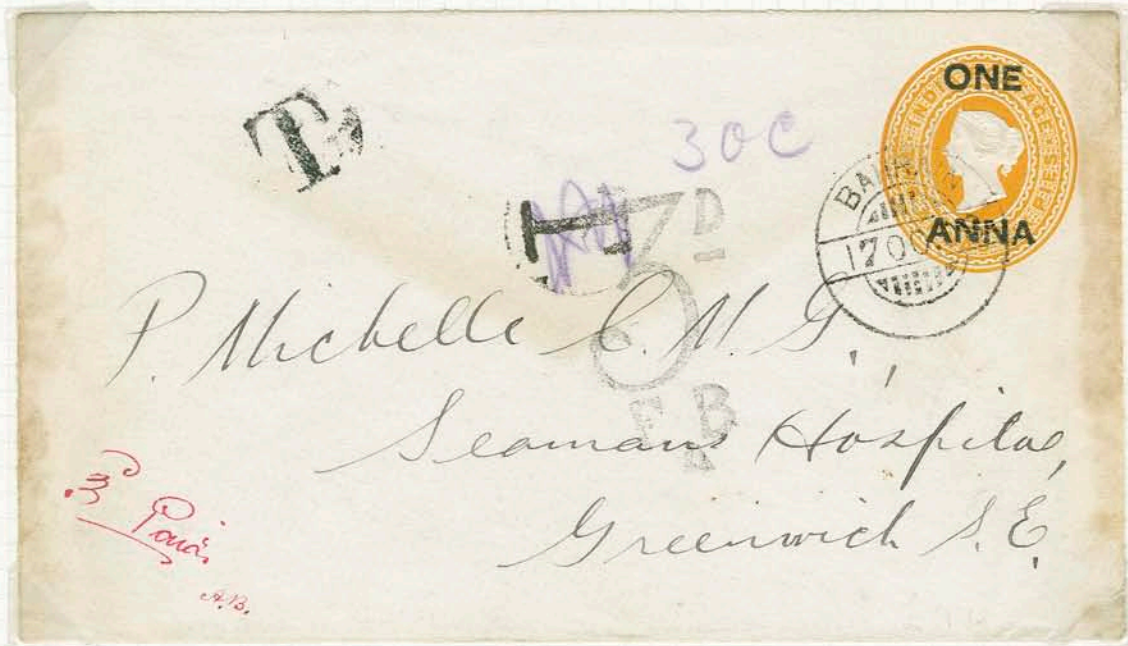 ONE
ANNA
T
30C
T
3D
F.B
P. Michelle C.M.G.,
Seamans Hospital,
Greenwich S.E.
A.B.